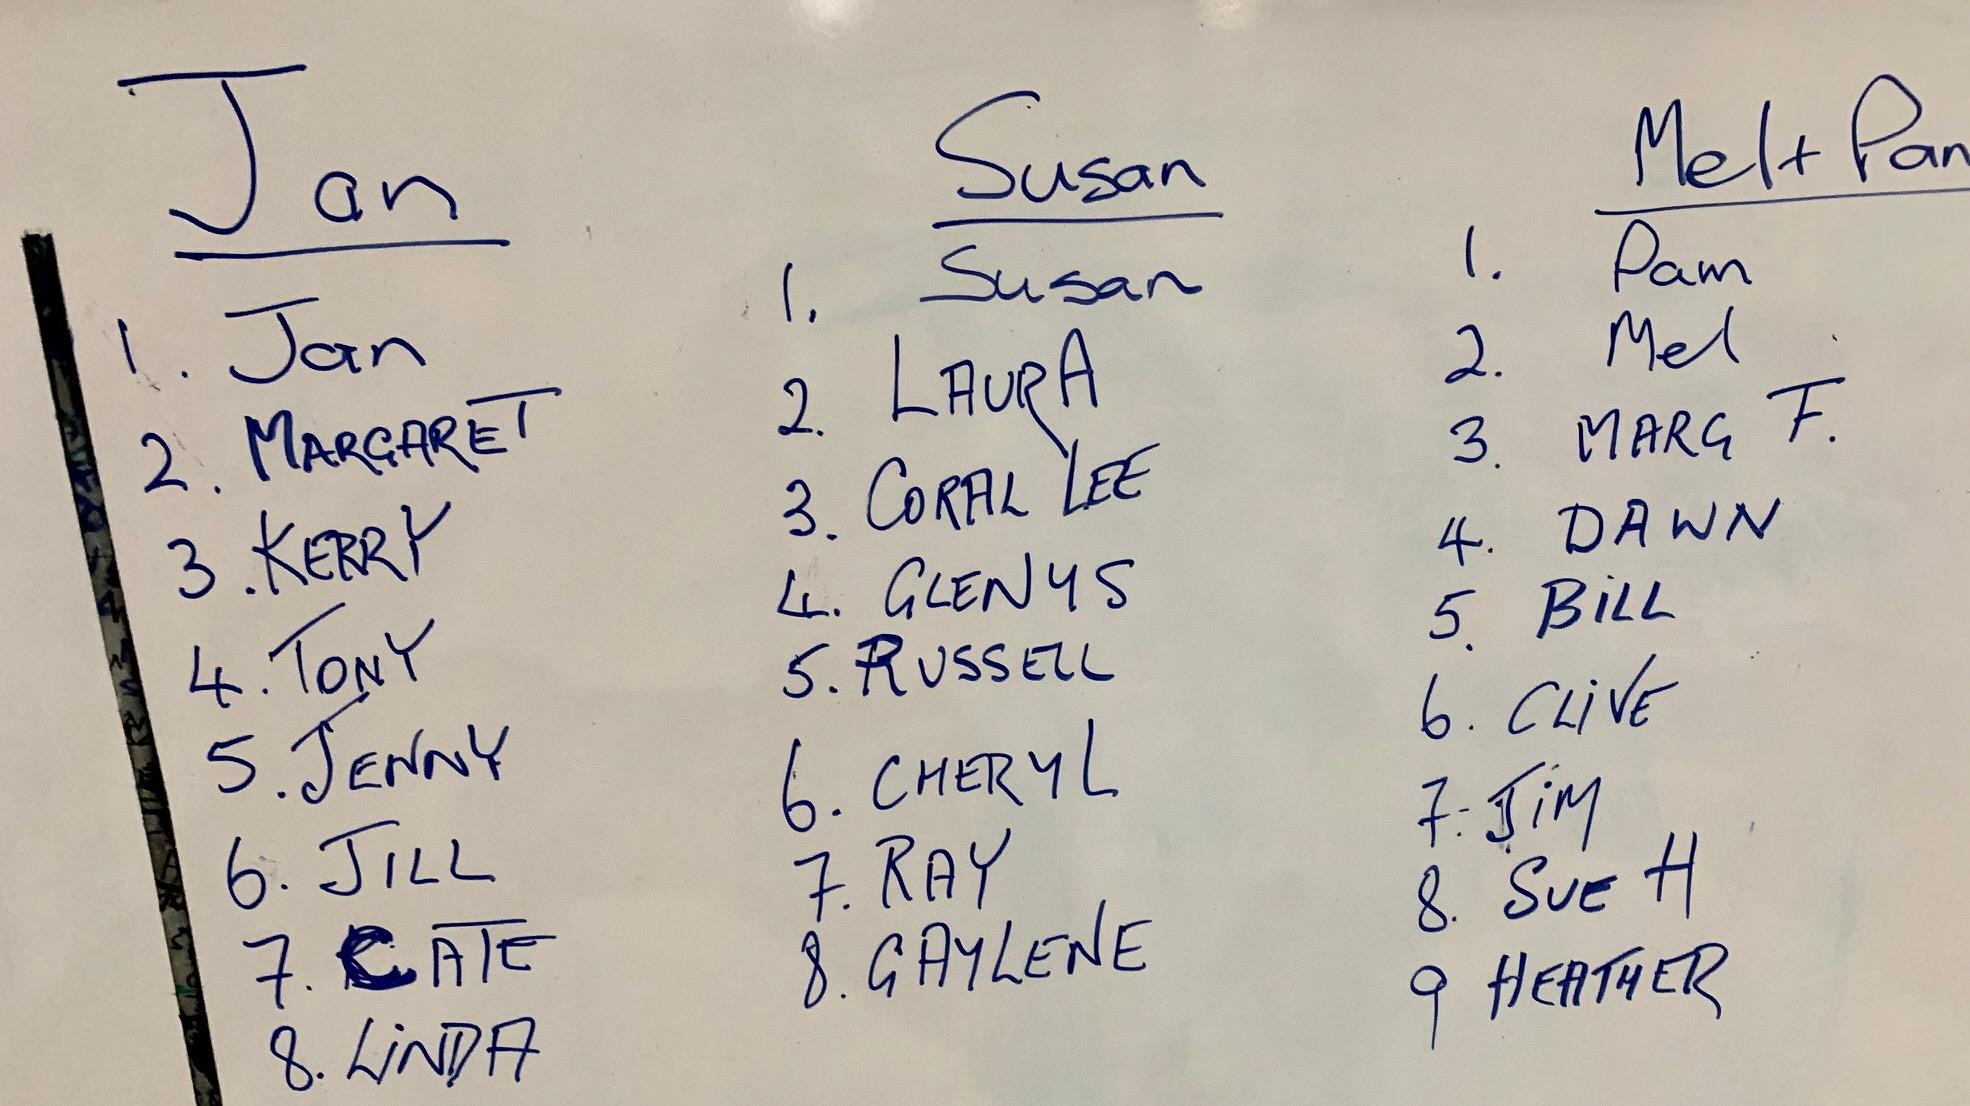 Jan
1. Jan
2. MARGARET
3. KERRY
4. TONY
5. JENNY
6. JILL
7. CATE
8. LiNDA
Susan
1. Susan
2. LAURA
3. CORAL LEE
4. GLENYS
5. RUSSELL
6. CHERYL
7. RAY
8. GAYLENE
Mel + Pam
1. Pam
2. Mel
3. MARG F.
4. DAWN
5. BiLL
6. CLiVE
7. JiM
8. SUE H
9 HEATHER